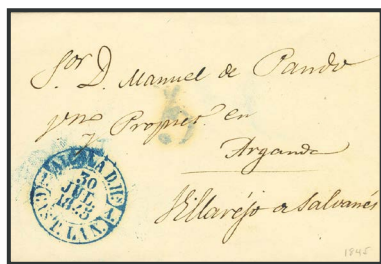 Sor. D. Manuel de Pando
y Propios en
Arganda
Villarejo a Salvanés
ALCALA D. HS.
30
JUL
1845
CAST. LA N.
1845